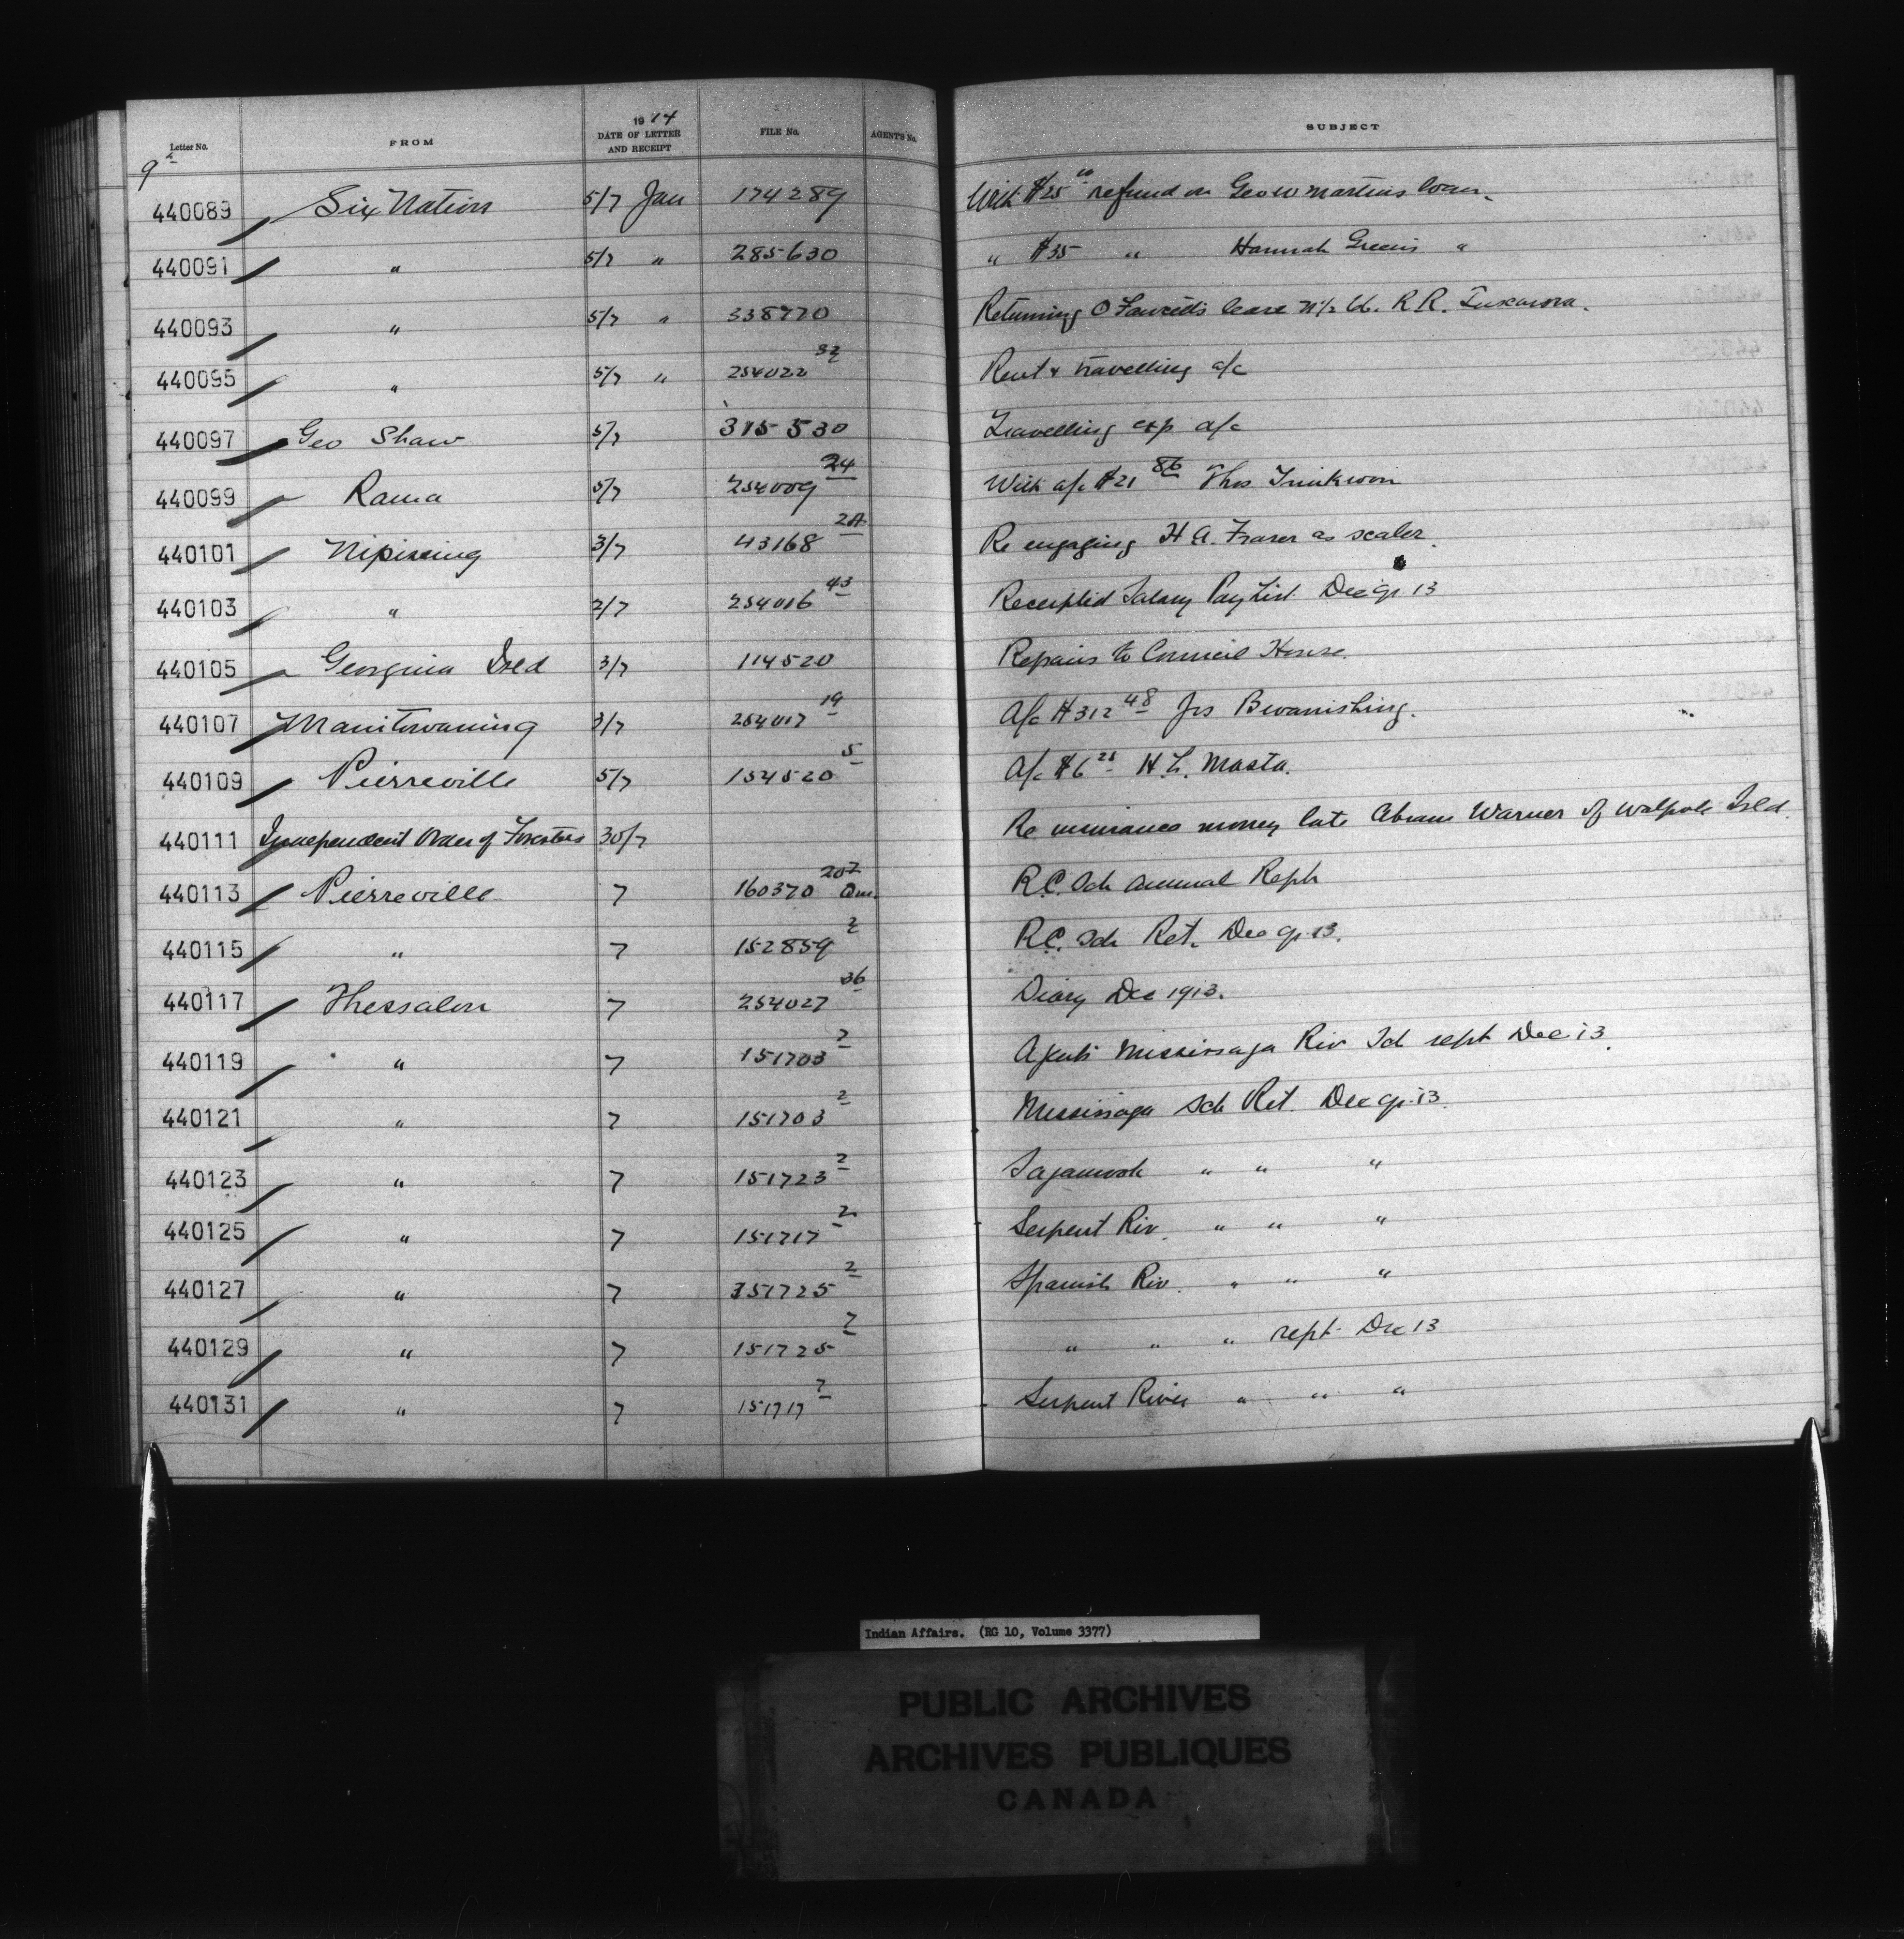 Letter No. FROM 1914 DATE OF LETTER AND RECEIPT FILE No. AGENT'S No. SUBJECT
9th
440089 Six Nation 5/7 Jan 174289 With $25 00 refund on Geo W Martins loan.
440091 " 5/7 " 285630 " $35 " Hannah Greens "
440093 " 5/7 " 338770 Returning O Fawcetts lease N 1/2 R. R. Tuscarora.
440095 " 5/7 " 254022 32 Rent & travelling a/c
440097 Geo Shaw 5/7 315530 Travelling exp a/c
440099 Rama 5/7 254009 24 With a/c $21 86 Thos
440101 Nipissing 3/7 43168 2A Re engaging H A. Fraser as scaler.
440103 " 2/7 254016 43 Receipted Salary Pay List Dec qr 13
440105 Georgina Isld 3/7 114520 Repairs to Council House.
440107 Manitowaning 3/7 254017 19 A/c $312 48 Jos Bwanishing.
440109 Pierreville 5/7 154520 5 A/c $6 25 H L. Masta.
440111 Independent Order of Foresters 30/7 Re insurance money late Abram Warner of Walpole Isld.
440113 Pierreville 7 160370 207 R.C. Sch annual Reph
440115 " 7 152859 2 R.C. Sch Ret. Dec qr 13.
440117 Thessalon 7 254027 36 Diary Dec 1913.
440119 " 7 151703 2 Agents Mississaga Riv Sch rept Dec 13.
440121 " 7 151703 2 Mississaga Sch Ret. Dec qr 13.
440123 " 7 151723 2 Sagamook " " "
440125 " 7 151717 2 Serpent Riv. " " "
440127 " 7 151725 2 Spanish Riv. " " "
440129 " 7 151725 2 " " " rept Dec 13
440131 " 7 151717 2 Serpent River " " "
Indian Affairs. (RG 10, Volume 3377)
PUBLIC ARCHIVES
ARCHIVES PUBLIQUES
CANADA